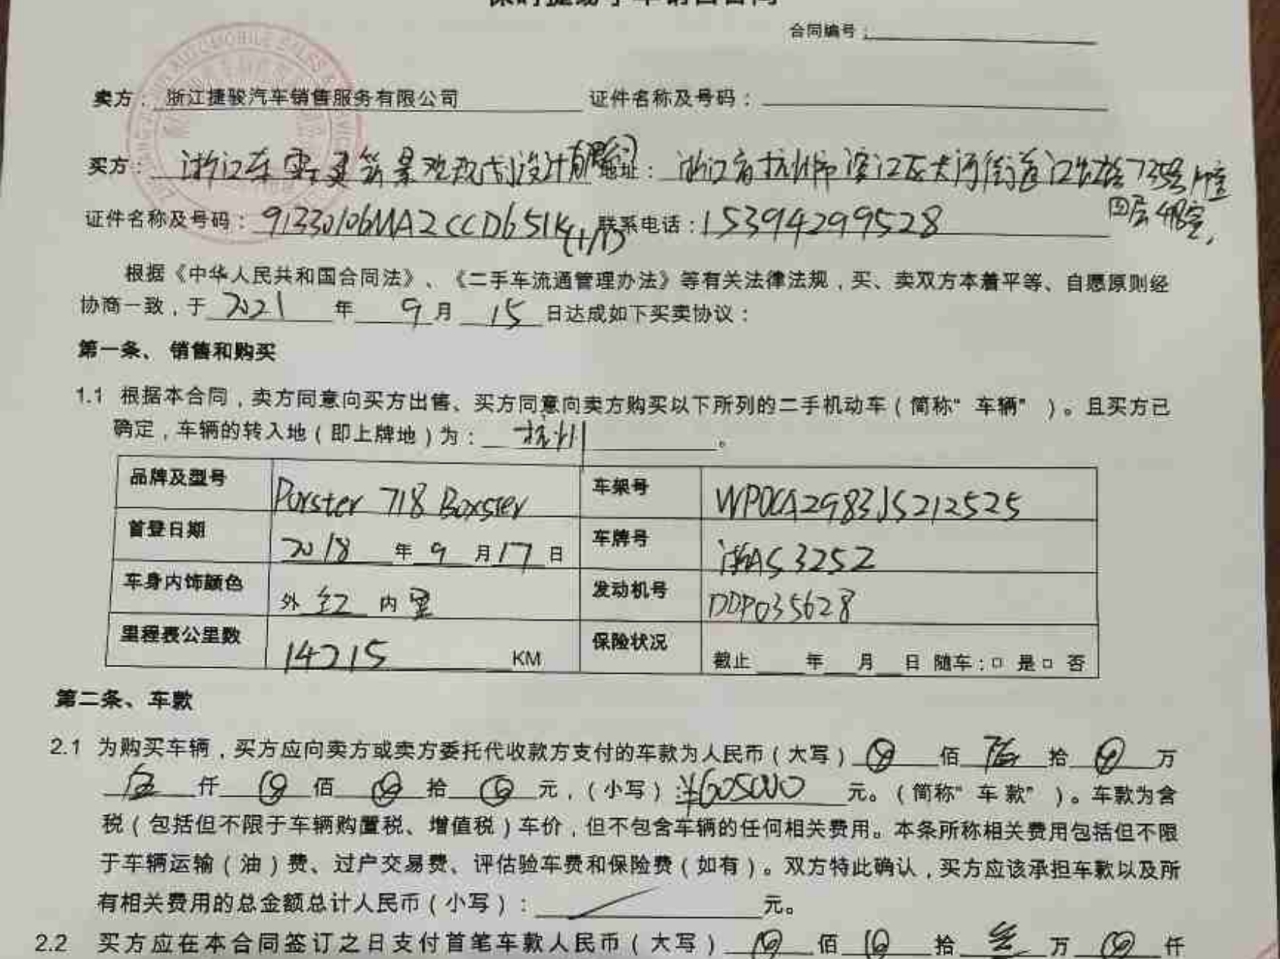 合同编号：
卖方：浙江捷骏汽车销售服务有限公司 证件名称及号码：
买方： 景观规划设计有限公司 地址：浙江省杭州市滨江区 街道
证件名称及号码：91330106MA2CCD651K(1/1) 联系电话：15394299528
四层
根据《中华人民共和国合同法》、《二手车流通管理办法》等有关法律法规，买、卖双方本着平等、自愿原则经
协商一致，于 2021 年 9 月 15 日达成如下买卖协议：
第一条、销售和购买
1.1 根据本合同，卖方同意向买方出售、买方同意向卖方购买以下所列的二手机动车（简称“车辆”）。且买方已
确定，车辆的转入地（即上牌地）为：杭州。
品牌及型号 Porster 718 Boxster 车架号 WP0CA2983JS212525
首登日期 2018 年 9 月 17 日 车牌号 浙AS3252
车身内饰颜色 外 红 内 黑 发动机号 DDP035628
里程表公里数 14215 KM 保险状况 截止 年 月 日 随车：□ 是□ 否
第二条、车款
2.1 为购买车辆，买方应向卖方或卖方委托代收款方支付的车款为人民币（大写） 佰 陆 拾 万
伍 仟 佰 拾 元，（小写）¥605000 元。（简称“车款”）。车款为含
税（包括但不限于车辆购置税、增值税）车价，但不包含车辆的任何相关费用。本条所称相关费用包括但不限
于车辆运输（油）费、过户交易费、评估验车费和保险费（如有）。双方特此确认，买方应该承担车款以及所
有相关费用的总金额总计人民币（小写）： 元。
2.2 买方应在本合同签订之日支付首笔车款人民币（大写） 佰 拾 万 仟